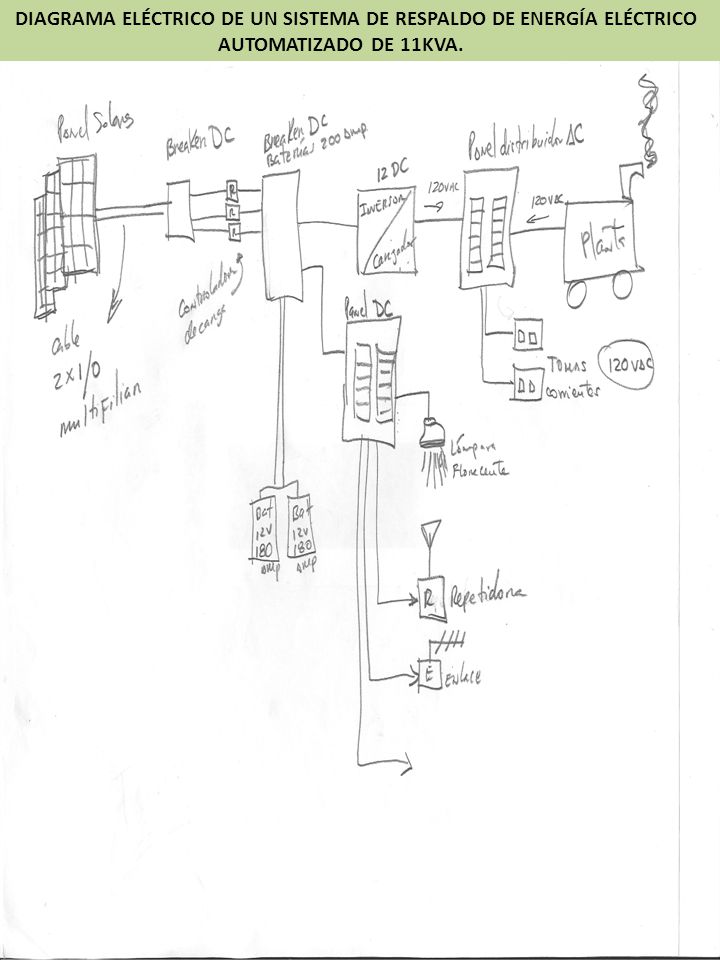 DIAGRAMA ELÉCTRICO DE UN SISTEMA DE RESPALDO DE ENERGÍA ELÉCTRICO
AUTOMATIZADO DE 11KVA.
Panel Solares
Breaker DC
Breaker DC
Baterías 200 Amp
12 DC
Panel distribuidor AC
R
R
R
INVERSOR
Cargador
120VAC
120VAC
Planta
Controlador
de carga
Panel DC
cable
2x1/0
multiFilian
Tomas
corrientes
120VAC
Lámpara
Florecente
Bat
12V
180
Amp
Bat
12V
180
Amp
R
Repetidora
E
Enlace